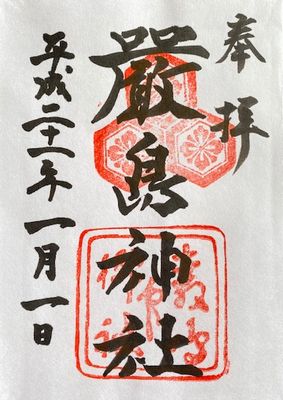 奉拝
嚴島神社
平成二十一年一月一日